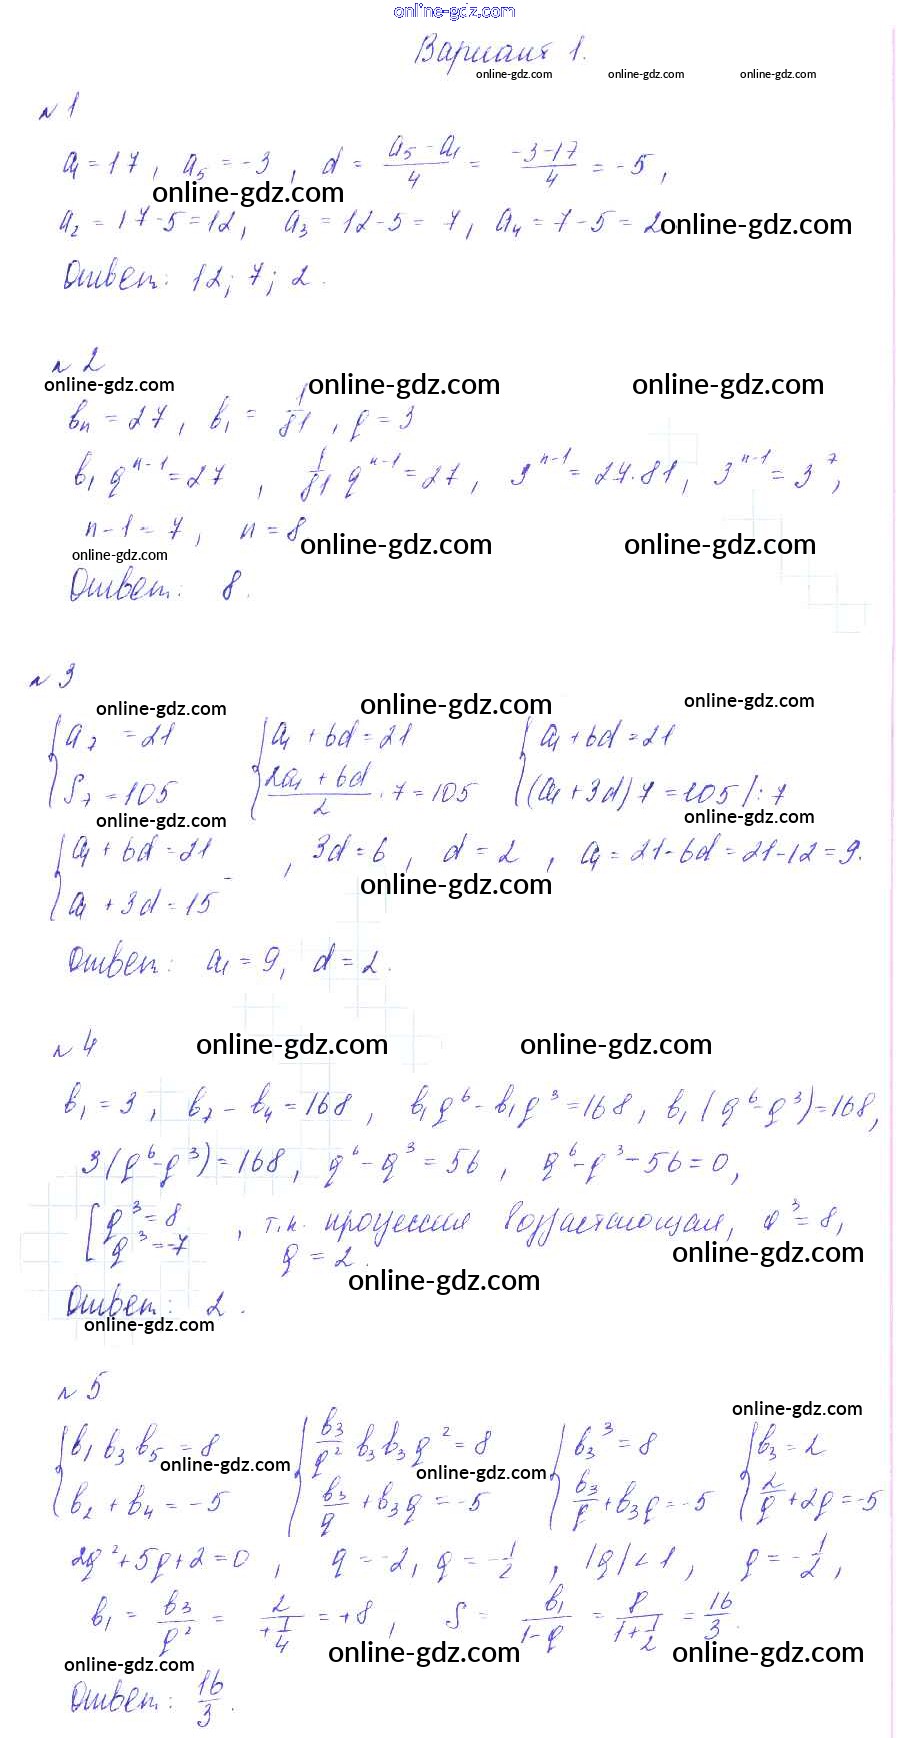 online-gdz.com
Вариант 1.
online-gdz.com online-gdz.com online-gdz.com
№ 1
a₁ = 17, a₅ = -3, d = (a₅ - a₁)/4 = (-3-17)/4 = -5,
online-gdz.com
a₂ = 17-5 = 12, a₃ = 12-5 = 7, a₄ = 7-5 = 2
online-gdz.com
Ответ: 12; 7; 2.
№ 2
online-gdz.com online-gdz.com online-gdz.com
bₙ = 27, b₁ = 1/81, q = 3
b₁ qⁿ⁻¹ = 27, 1/81 qⁿ⁻¹ = 27, 3ⁿ⁻¹ = 27·81, 3ⁿ⁻¹ = 3⁷,
n-1 = 7, n = 8
online-gdz.com online-gdz.com online-gdz.com
Ответ: 8.
№ 3
online-gdz.com online-gdz.com online-gdz.com
{a₇ = 21 {a₁ + 6d = 21 {a₁ + 6d = 21
S₇ = 105 (2a₁ + 6d)/2 · 7 = 105 (a₁ + 3d) 7 = 105 /: 7
online-gdz.com online-gdz.com
{a₁ + 6d = 21
a₁ + 3d = 15 -, 3d = 6, d = 2, a₁ = 21-6d = 21-12 = 9.
online-gdz.com
Ответ: a₁ = 9, d = 2.
№ 4
online-gdz.com online-gdz.com
b₁ = 3, b₇ - b₄ = 168, b₁q⁶ - b₁q³ = 168, b₁(q⁶-q³) = 168,
3(q⁶-q³) = 168, q⁶ - q³ = 56, q⁶ - q³ - 56 = 0,
[q³ = 8
q³ = -7, т.к. прогрессия возрастающая, q³ = 8,
q = 2.
online-gdz.com online-gdz.com
Ответ: 2.
online-gdz.com
№ 5
online-gdz.com
{b₁ b₃ b₅ = 8 {b₃/q² b₃ b₃ q² = 8 {b₃³ = 8 {b₃ = 2
online-gdz.com online-gdz.com
b₂ + b₄ = -5 b₃/q + b₃q = -5 b₃/q + b₃q = -5 2/q + 2q = -5
2q² + 5q + 2 = 0, q = -2, q = -1/2, |q| < 1, q = -1/2,
b₁ = b₃/q² = 2/(+1/4) = +8, S = b₁/(1-q) = 8/(1+1/2) = 16/3.
online-gdz.com online-gdz.com online-gdz.com
Ответ: 16/3.